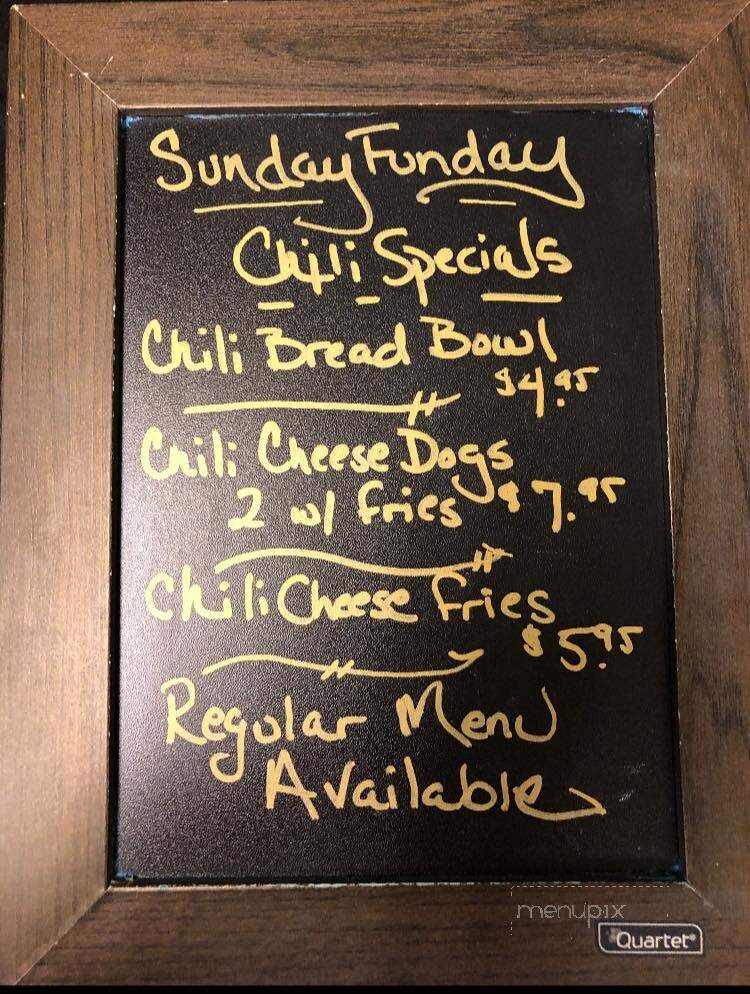 Sunday Funday
Chili Specials
Chili Bread Bowl
$4.95
Chili Cheese Dogs
2 w/ fries $7.95
Chili Cheese Fries
$5.95
Regular Menu
Available
menupix
Quartet®